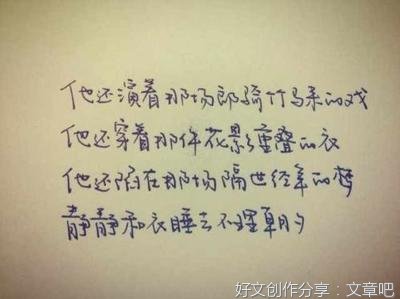 他还演着那场郎骑竹马来的戏
他还穿着那件花影重叠的衣
他还陷在那场隔世经年的梦
静静和衣睡去不理朝夕
好文创作分享：文章吧